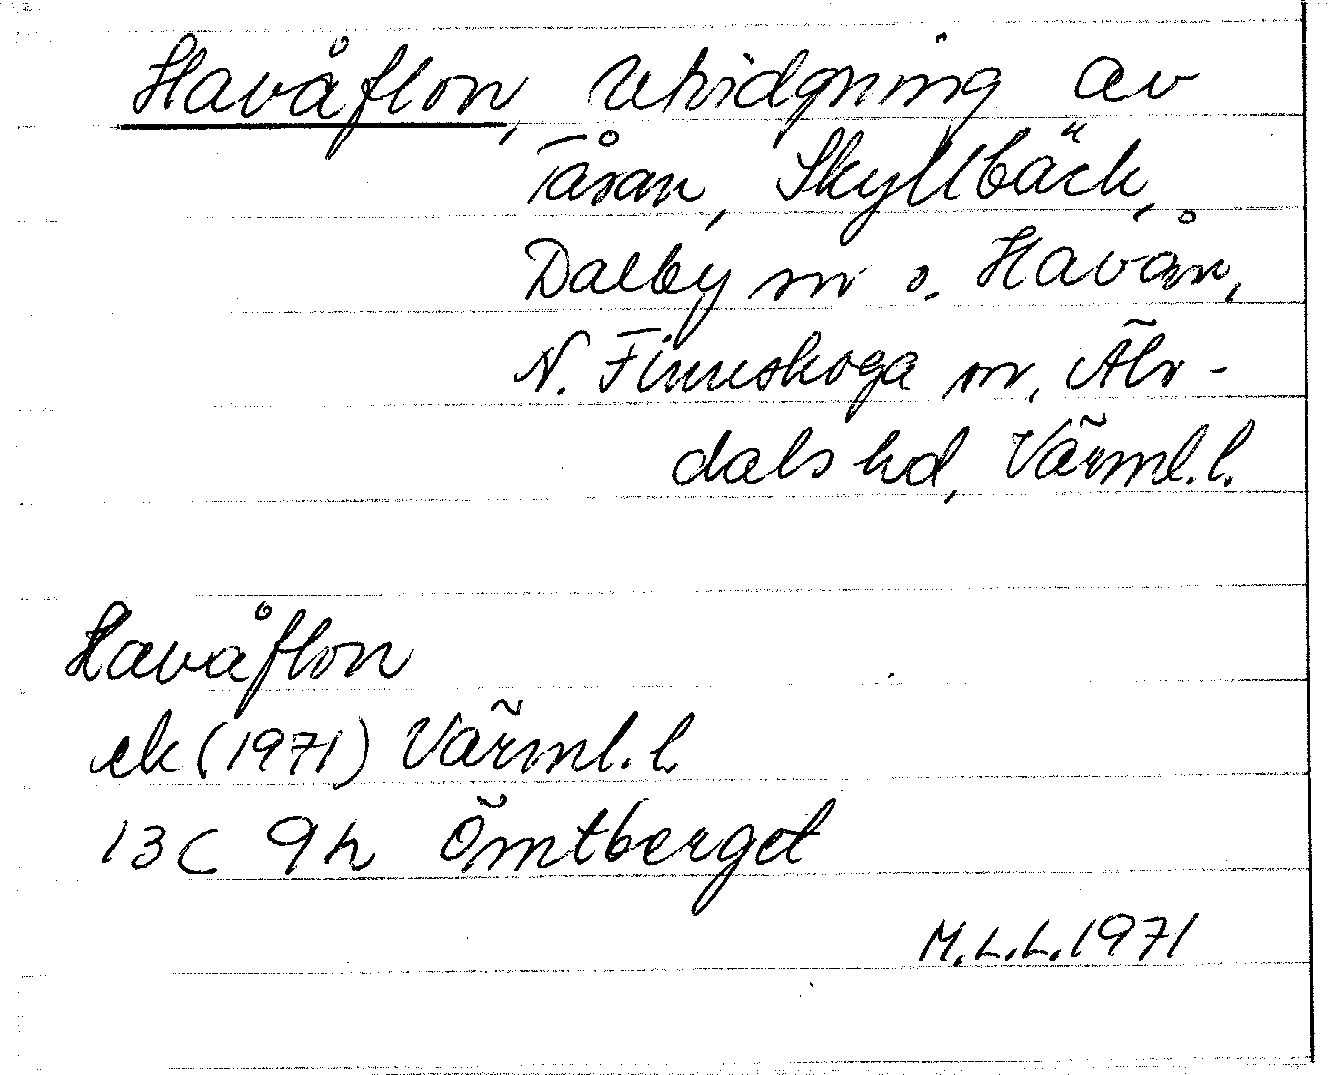 Havåflon, utvidgning av
Tåsan, Skyllbäck,
Dalby sn o. Havån,
N. Finneskoga sn, Älv-
dals hd, Värml. l.
Havåflon
ek (1971) Värml. l.
13 C 9h Ömtberget
M.L.L. 1971